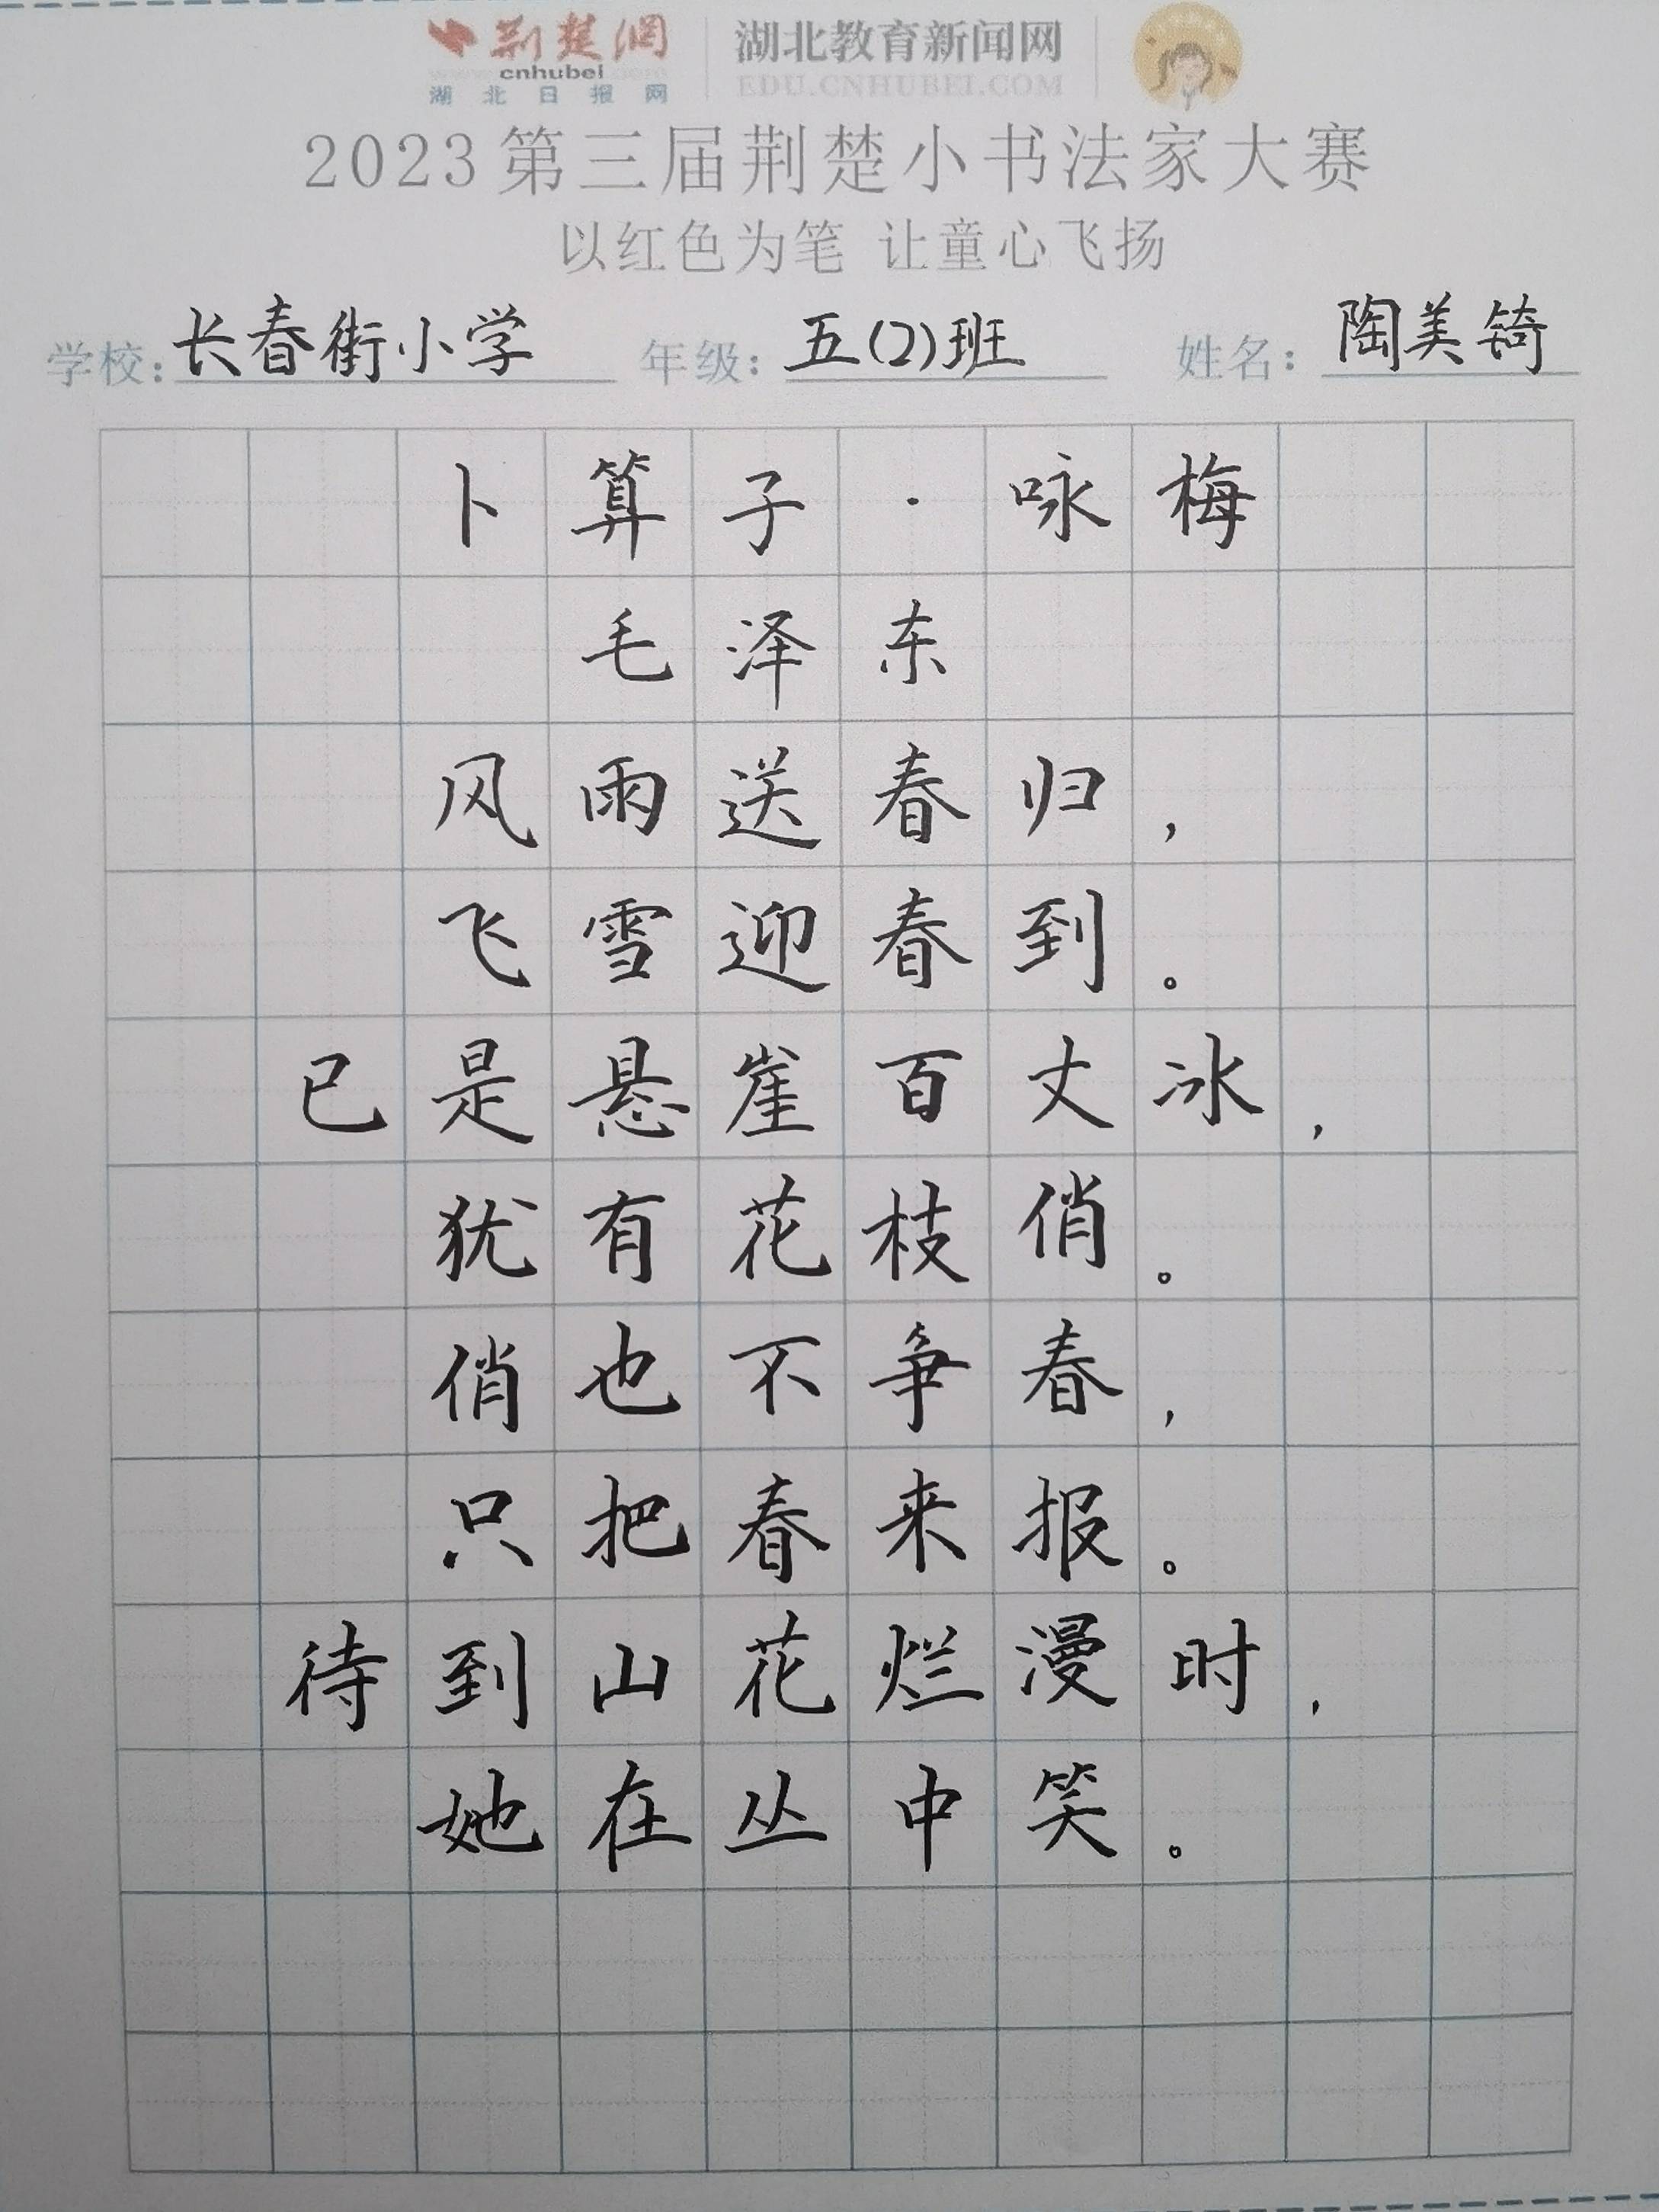 荆楚网 湖北教育新闻网
cnhubei EDU.CNHUBEI.COM
湖北日报网
2023第三届荆楚小书法家大赛
以红色为笔 让童心飞扬
学校：长春街小学 年级：五(2)班 姓名：陶美锜
卜算子·咏梅
毛泽东
风雨送春归，
飞雪迎春到。
已是悬崖百丈冰，
犹有花枝俏。
俏也不争春，
只把春来报。
待到山花烂漫时，
她在丛中笑。